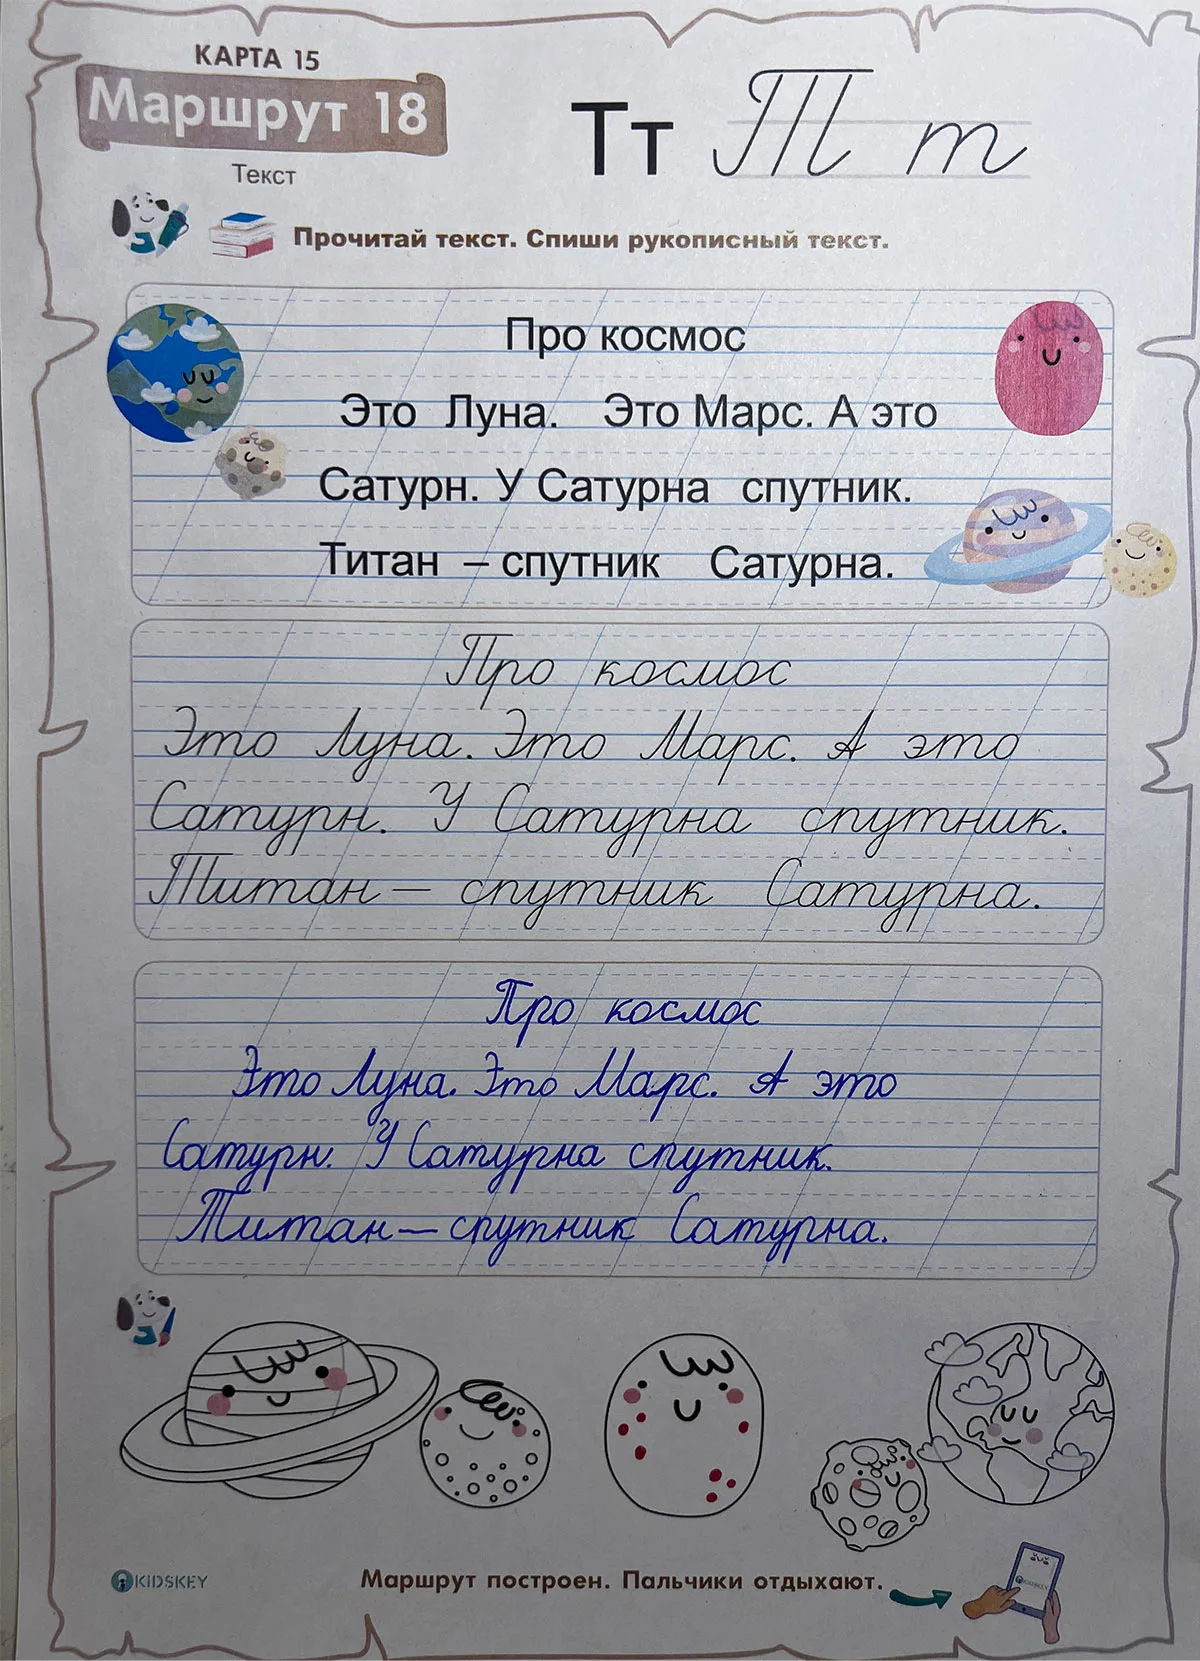 КАРТА 15
Маршрут 18
Текст
Тт Т т
Прочитай текст. Спиши рукописный текст.
Про космос
Это Луна. Это Марс. А это
Сатурн. У Сатурна спутник.
Титан – спутник Сатурна.
Про космос
Это Луна. Это Марс. А это
Сатурн. У Сатурна спутник.
Титан — спутник Сатурна.
Про космос
Это Луна. Это Марс. А это
Сатурн. У Сатурна спутник.
Титан — спутник Сатурна.
KIDSKEY
Маршрут построен. Пальчики отдыхают.
KIDSKEY